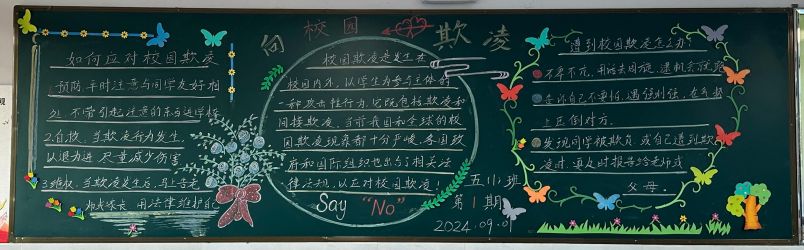 向校园欺凌
如何应对校园欺凌
1.预防.平时注意与同学友好相
处.不带引起注意的东西进学校
2.自救.当欺凌行为发生
以退为进.尽量减少伤害
3.维权.当欺凌发生后.马上告老
师或家长.用法律维护自己
校园欺凌是发生在
校园内外,以学生为参与主体的
一种攻击性行为,它既包括欺凌和
间接欺凌.当前我国和全球的校
园欺凌现象都十分严峻.多国政
府和国际组织也出台了相关法
律法规,以应对校园欺凌!
Say "No"
五(1)班
第1期
2024.09.01
遭到校园欺凌怎么办?
不卑不亢.用话去回旋.逃机会
告诉自己不要怕.遇强则强.在气势
上压倒对方.
发现同学被欺负.或自己遭到欺
凌时.要及时报告给老师或
父母.